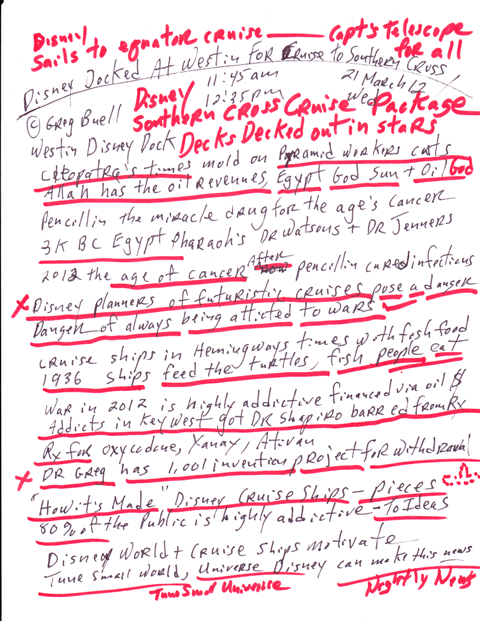 Disney
Sails to equator cruise — Capt's Telescope
for all
Disney Docked At Westin For Cruise To Southern Cross
11:45 am
21 March 12
Disney
12:35 pm
Wed
© Greg Buell
Southern Cross Cruise Package
Westin Disney Dock
Decks Decked out in stars
Cleopatra's times mold on Pyramid workers cuts
Allah has the oil revenues, Egypt God Sun + Oil God
Pencillin the miracle drug for the age's cancer
3K BC Egypt Pharaoh's DR Watsons + DR Jenners
2012 the age of cancer After pencillin cured infections
x Disney planners of futuristic cruises pose a danger
Danger of always being atticted to wars
Cruise ships in Hemingways times with fish food
1936 ships feed the turtles, fish people eat
War in 2012 is highly addictive financed via oil $
Addicts in Key West got DR Shapiro barred from Rx
Rx for oxycodone, Xanax, Ativan
x DR Greg has 1,001 invention project for withdrawal
"How it's Made" Disney Cruise Ships – pieces
80% of the Public is highly addictive – To Ideas
Disney World + Cruise ships motivate
Tune Small World, Universe Disney can make this news
Tune Small Universe
Nightly News